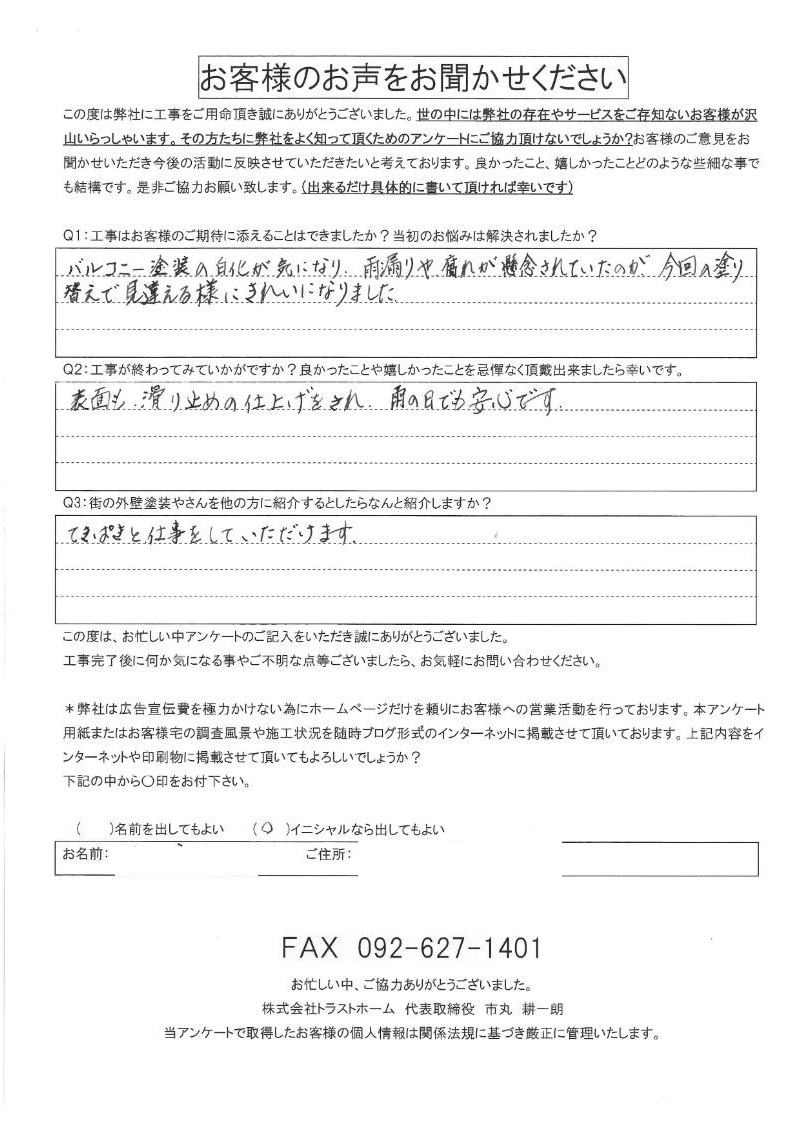 お客様のお声をお聞かせください
この度は弊社に工事をご用命頂き誠にありがとうございました。世の中には弊社の存在やサービスをご存知ないお客様が沢
山いらっしゃいます。その方たちに弊社をよく知って頂くためのアンケートにご協力頂けないでしょうか?お客様のご意見をお
聞かせいただき今後の活動に反映させていただきたいと考えております。良かったこと、嬉しかったことどのような些細な事で
も結構です。是非ご協力お願い致します。(出来るだけ具体的に書いて頂ければ幸いです)
Q1:工事はお客様のご期待に添えることはできましたか?当初のお悩みは解決されましたか?
バルコニー塗装の白化が気になり、雨漏りや腐れが懸念されていたのが今回の塗り
替えで見違える様にきれいになりました
Q2:工事が終わってみていかがですか?良かったことや嬉しかったことを忌憚なく頂戴出来ましたら幸いです。
表面も滑り止めの仕上げをされ、雨の日でも安心です。
Q3:街の外壁塗装やさんを他の方に紹介するとしたらなんと紹介しますか?
てきぱきと仕事をしていただけます。
この度は、お忙しい中アンケートのご記入をいただき誠にありがとうございました。
工事完了後に何か気になる事やご不明な点等ございましたら、お気軽にお問い合わせください。
*弊社は広告宣伝費を極力かけない為にホームページだけを頼りにお客様への営業活動を行っております。本アンケート
用紙またはお客様宅の調査風景や施工状況を随時ブログ形式のインターネットに掲載させて頂いております。上記内容をイ
ンターネットや印刷物に掲載させて頂いてもよろしいでしょうか?
下記の中から〇印をお付下さい。
( )名前を出してもよい (〇)イニシャルなら出してもよい
お名前: ご住所:
FAX 092-627-1401
お忙しい中、ご協力ありがとうございました。
株式会社トラストホーム 代表取締役 市丸 耕一朗
当アンケートで取得したお客様の個人情報は関係法規に基づき厳正に管理いたします。